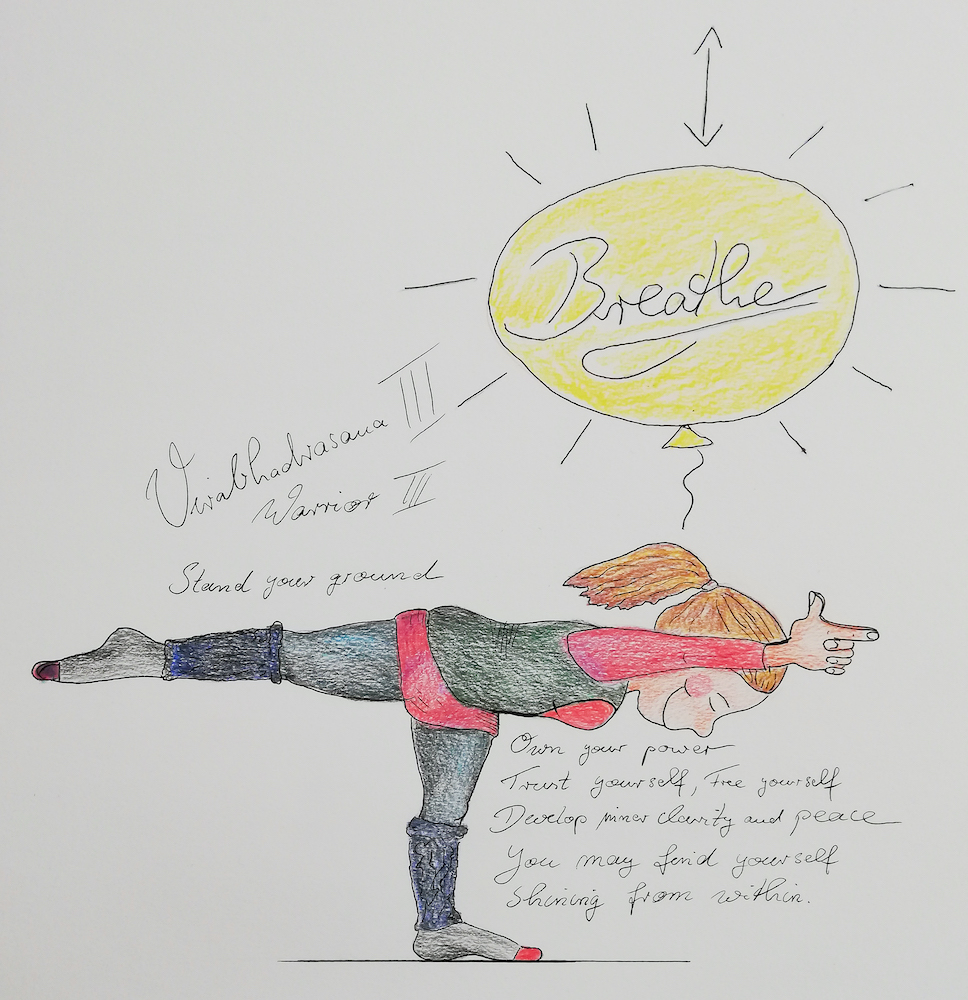 Breathe
Virabhadrasana III
Warrior III
Stand your ground
Own your power
Trust yourself, Free yourself
Develop inner clarity and peace
You may find yourself
Shining from within.